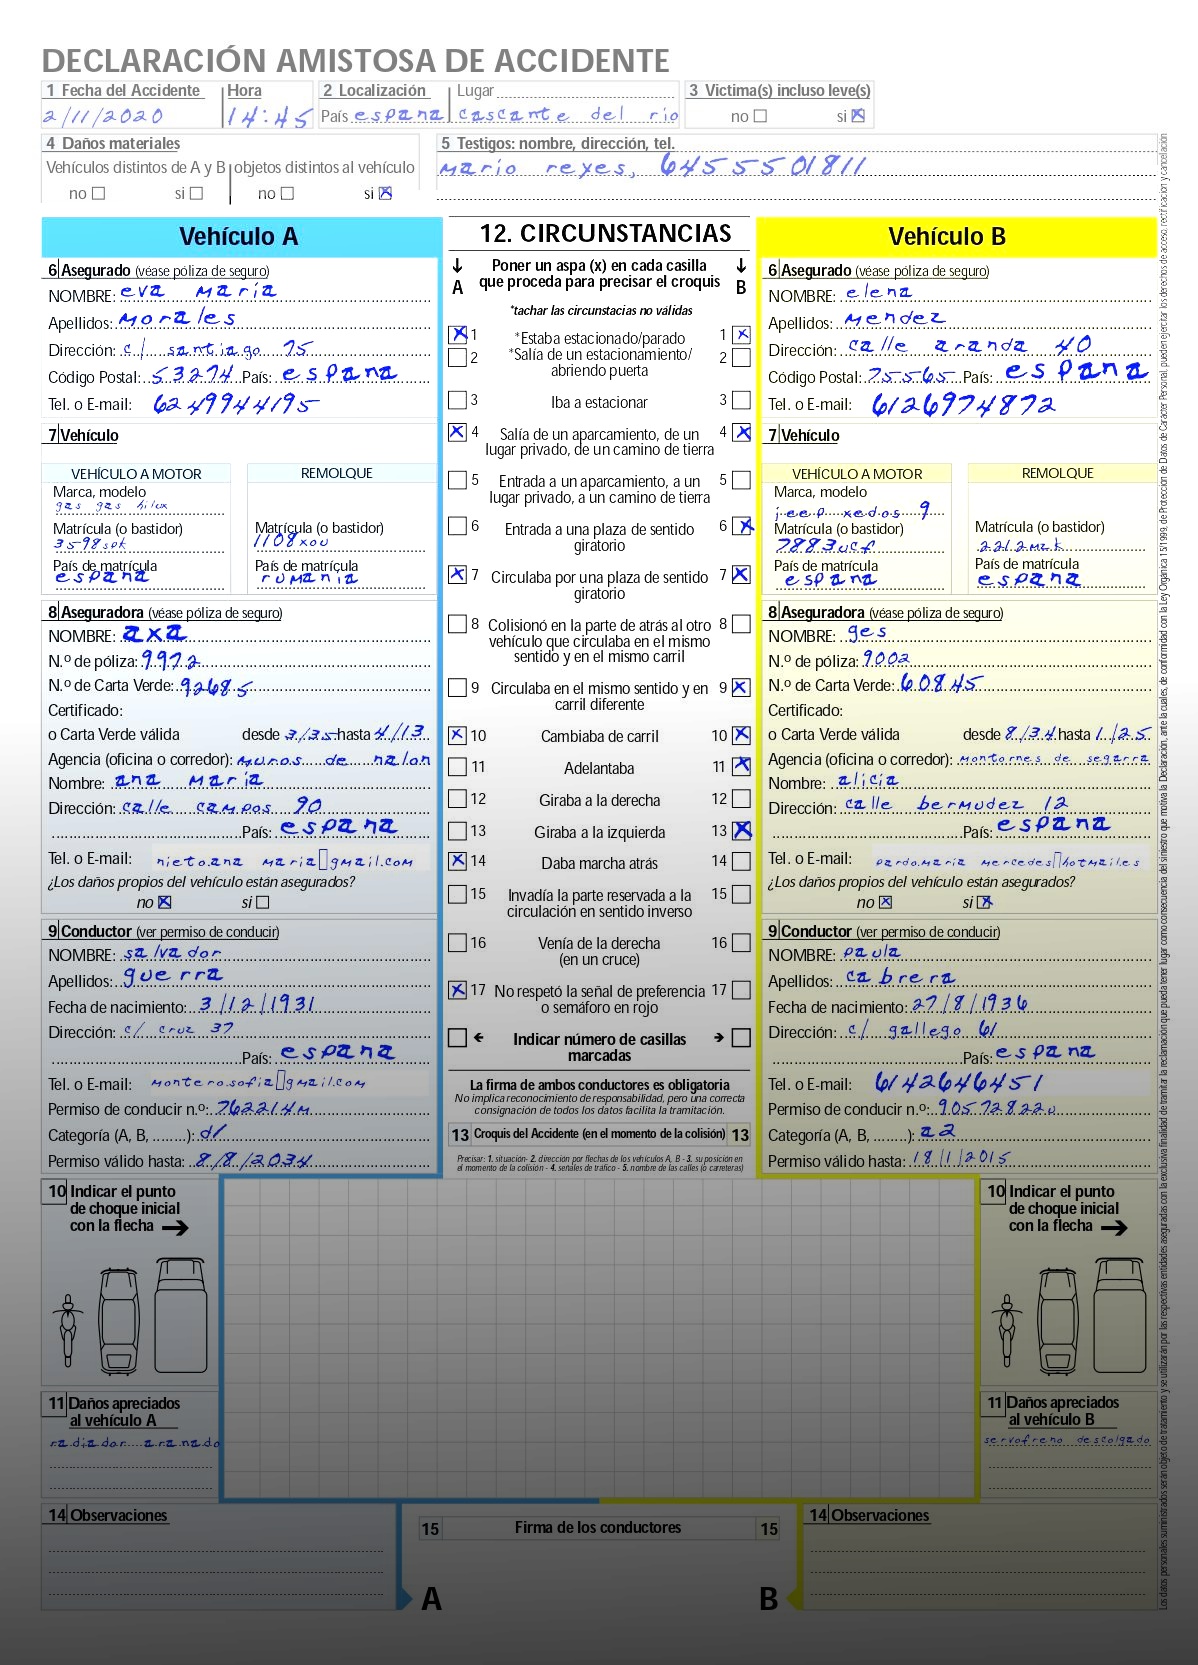 DECLARACIÓN AMISTOSA DE ACCIDENTE
1 Fecha del Accidente Hora 2 Localización Lugar 3 Victima(s) incluso leve(s)
2/11/2020 14:45 País espana cascante del rio no si
4 Daños materiales 5 Testigos: nombre, dirección, tel.
Vehículos distintos de A y B objetos distintos al vehículo mario reyes, 6455501811
no si no si
Vehículo A
6 Asegurado (véase póliza de seguro)
NOMBRE: eva maria
Apellidos: morales
Dirección: c/ santiago 75
Código Postal: 53274 País: espana
Tel. o E-mail: 6249944195
7 Vehículo
VEHÍCULO A MOTOR REMOLQUE
Marca, modelo
gas gas hilux
Matrícula (o bastidor) Matrícula (o bastidor)
3598spk 1108xou
País de matrícula País de matrícula
espana rumania
8 Aseguradora (véase póliza de seguro)
NOMBRE: axa
N.º de póliza: 9972
N.º de Carta Verde: 92685
Certificado:
o Carta Verde válida desde 3/35 hasta 4/13
Agencia (oficina o corredor): muros de nalon
Nombre: ana maria
Dirección: calle campos 90
País: espana
Tel. o E-mail: nieto.ana maria▯gmail.com
¿Los daños propios del vehículo están asegurados?
no si
9 Conductor (ver permiso de conducir)
NOMBRE: salvador
Apellidos: guerra
Fecha de nacimiento: 3/12/1931
Dirección: c/ cruz 37
País: espana
Tel. o E-mail: montero.sofia▯gmail.com
Permiso de conducir n.º: 762214m
Categoría (A, B, ........): d1
Permiso válido hasta: 8/8/2034
10 Indicar el punto
de choque inicial
con la flecha
11 Daños apreciados
al vehículo A
radiador aranado
14 Observaciones
12. CIRCUNSTANCIAS
A Poner un aspa (x) en cada casilla B
que proceda para precisar el croquis
*tachar las circunstacias no válidas
1 *Estaba estacionado/parado 1
2 *Salía de un estacionamiento/ 2
abriendo puerta
3 Iba a estacionar 3
4 Salía de un aparcamiento, de un 4
lugar privado, de un camino de tierra
5 Entrada a un aparcamiento, a un 5
lugar privado, a un camino de tierra
6 Entrada a una plaza de sentido 6
giratorio
7 Circulaba por una plaza de sentido 7
giratorio
8 Colisionó en la parte de atrás al otro 8
vehículo que circulaba en el mismo
sentido y en el mismo carril
9 Circulaba en el mismo sentido y en 9
carril diferente
10 Cambiaba de carril 10
11 Adelantaba 11
12 Giraba a la derecha 12
13 Giraba a la izquierda 13
14 Daba marcha atrás 14
15 Invadía la parte reservada a la 15
circulación en sentido inverso
16 Venía de la derecha 16
(en un cruce)
17 No respetó la señal de preferencia 17
o semáforo en rojo
Indicar número de casillas
marcadas
La firma de ambos conductores es obligatoria
No implica reconocimiento de responsabilidad, pero una correcta
consignación de todos los datos facilita la tramitación.
13 Croquis del Accidente (en el momento de la colisión) 13
Precisar: 1. situación- 2. dirección por flechas de los vehículos A, B - 3. su posición en
el momento de la colisión - 4. señales de tráfico - 5. nombre de las calles (o carreteras)
15 Firma de los conductores 15
A B
Vehículo B
6 Asegurado (véase póliza de seguro)
NOMBRE: elena
Apellidos: mendez
Dirección: calle aranda 40
Código Postal: 75565 País: espana
Tel. o E-mail: 6126974872
7 Vehículo
VEHÍCULO A MOTOR REMOLQUE
Marca, modelo
jeep xedos 9
Matrícula (o bastidor) Matrícula (o bastidor)
7883ucf 2212mzk
País de matrícula País de matrícula
espana espana
8 Aseguradora (véase póliza de seguro)
NOMBRE: ges
N.º de póliza: 9002
N.º de Carta Verde: 60845
Certificado:
o Carta Verde válida desde 8/34 hasta 1/25
Agencia (oficina o corredor): montornes de segarra
Nombre: alicia
Dirección: calle bermudez 12
País: espana
Tel. o E-mail: pardo.maria mercedes▯hotmail.es
¿Los daños propios del vehículo están asegurados?
no si
9 Conductor (ver permiso de conducir)
NOMBRE: paula
Apellidos: cabrera
Fecha de nacimiento: 27/8/1936
Dirección: c/ gallego 61
País: espana
Tel. o E-mail: 6142646451
Permiso de conducir n.º: 90572822u
Categoría (A, B, ........): a2
Permiso válido hasta: 18/1/2015
10 Indicar el punto
de choque inicial
con la flecha
11 Daños apreciados
al vehículo B
servofreno descolgado
14 Observaciones
Los datos personales suministrados serán objeto de tratamiento y se utilizarán por las respectivas entidades aseguradas con la exclusiva finalidad de tramitar la reclamación que pueda tener lugar como consecuencia del siniestro que motiva la Declaración, ante la cuales, de conformidad con la Ley Orgánica 15/1999, de Protección de Datos de Carácter Personal, pueden ejercitar los derechos de acceso, rectificación y cancelación